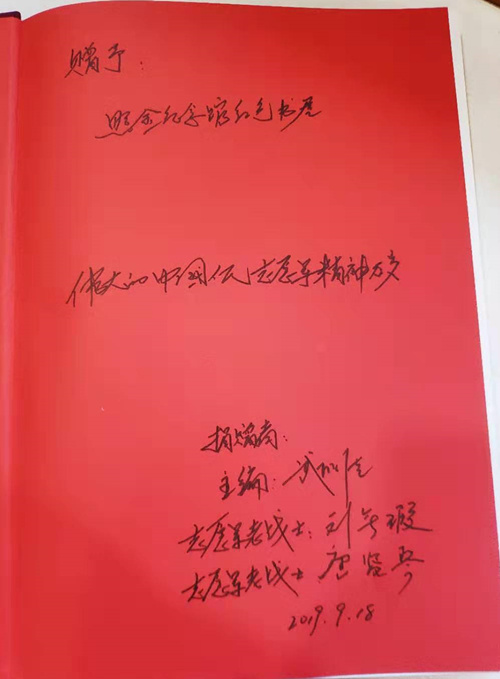 赠予:
照金纪念馆红色书屋
伟大的中国人民志愿军精神万岁
捐赠者:
主编:
志愿军老战士:刘
志愿军老战士 唐
2019.9.18